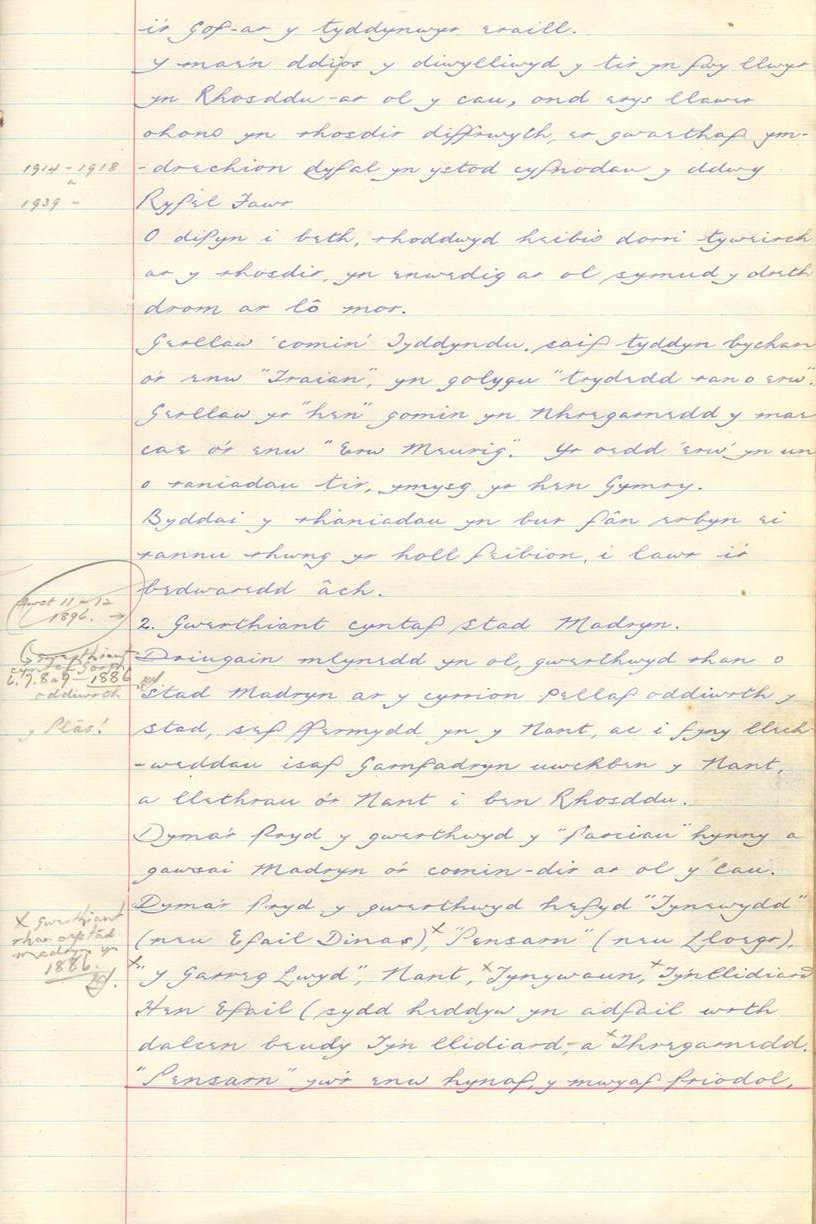 i'r Gof-ar y tyddynwyr eraill.
Y mae'n ddios y diwylliwyd y tir yn fwy llwyr
yn Rhosddu-ar ol y cau, ond erys llawer
ohono yn rhosdir diffrwyth, er gwaethaf ym-
-drechion dyfal yn ystod cyfnodau y ddwy
1914-1918
a
1939 -
Ryfel Fawr
O dipyn i beth, rhoddwyd heibio dorri tyweirch
ar y rhosdir, yn enwedig ar ol symud y dreth
drom ar lô mor.
Gerllaw 'comin' Tyddyndu, saif tyddyn bychan
o'r enw "Traian", yn golygu "trydedd ran o erw".
Gerllaw yr "hen" gomin yn Nhregarnedd y mae
cae o'r enw "Erw Meurig". Yr oedd 'erw' yn un
o raniadau tir, ymysg yr hen Gymry.
Byddai y rhaniadau yn bur fân erbyn ei
rannu rhwng yr holl feibion, i lawr i'r
bedwaredd âch.
Awst 11-12
1896. →
2. Gwerthiant cyntaf Stad Madryn.
Gwerthiant
cyntaf Gorph.
6. 7. 8 a 9 - 1886
oddiwrth
y Plâs!
Driugain mlynedd yn ol, gwerthwyd rhan o
Stad Madryn ar y cyrrion pellaf oddiwrth y
stad, sef ffermydd yn y Nant, ac i fyny llech-
-weddau isaf Garnfadryn uwchben y Nant,
a llethrau o'r Nant i ben Rhosddu.
Dyma'r Pryd y gwerthwyd y "Parciau" hynny a
gawsai Madryn o'r comin-dir ar ol y 'cau.
Dyma'r Pryd y gwerthwyd hefyd "Tynewydd"
X Gwerthiant
rhan o ystad
Madryn yn
1886.
(neu Efail Dinas), X "Pensarn" (neu Lloegr),
X "y Garreg Lwyd", Nant, X Tynywaun, X Ty'nllidiard
Hen Efail (sydd heddyw yn adfail wrth
dalcen beudy Ty'n llidiard,-a X Thregarnedd.
"Pensarn" yw'r enw hynaf, y mwyaf priodol,